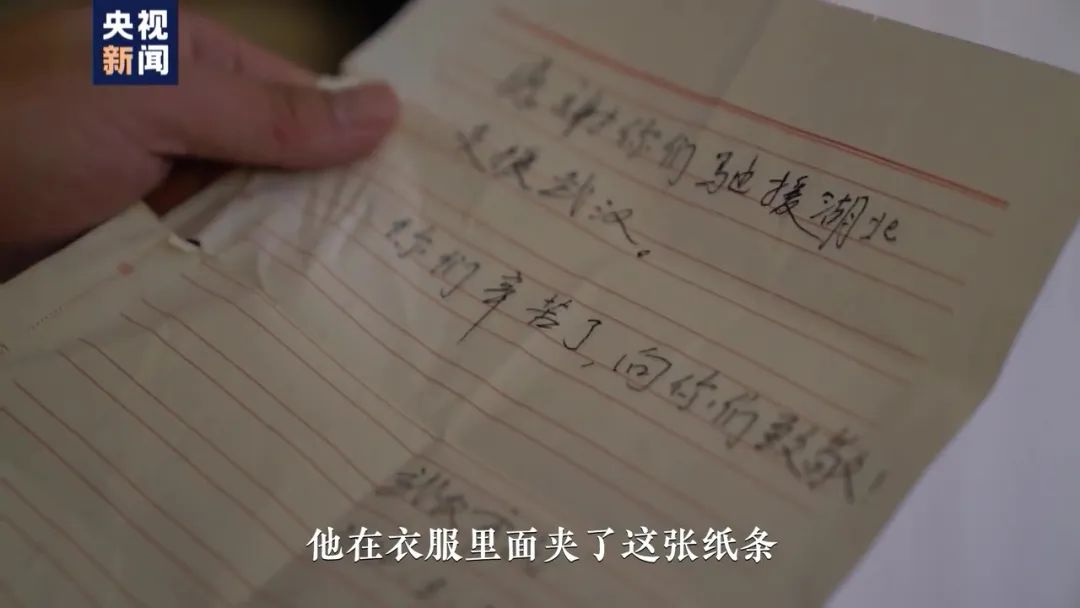 央视
新闻
感谢你们驰援湖北
支援武汉。
你们辛苦了,向你们致敬!
他在衣服里面夹了这张纸条